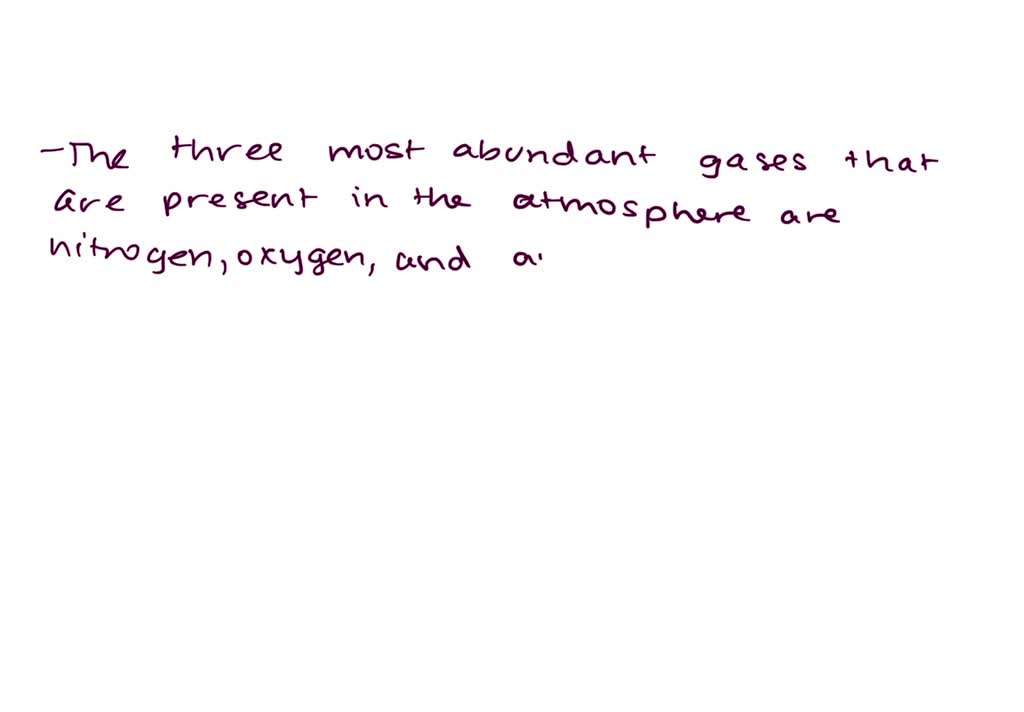 - The three most abundant gases that
are present in the atmosphere are
nitrogen, oxygen, and a